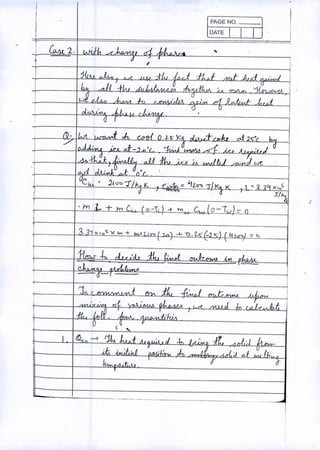 PAGE NO.
DATE
Case 2. with change of phases
Here also, we use the fact that net heat gained
by all the substances together is zero. However,
we also have to consider gain of Latent heat
during phase change.
Q: We want to cool 0.25 kg diet coke at 25°C by
adding ice at -20°C. Find mass of ice required
so that, finally all the ice is melted and we
get drink at 0°C.
= 2100 J/kg K, = 4200 J/kg K, L = 3.34 x 10⁵
J/kg
m L + m C (0-Ti) + m Cw (0-Tw) = 0
3.34 x 10⁵ x m + m x 2100 (20) + 0.25 (-25) (4200) = 0
How to decide the final outcome in phase
change problems
To comment on the final outcome upon
mixing of various phases, we need to calculate
the foll. four quantities
1. → The heat required to bring the solid from
its initial position to solid at melting
temperature.